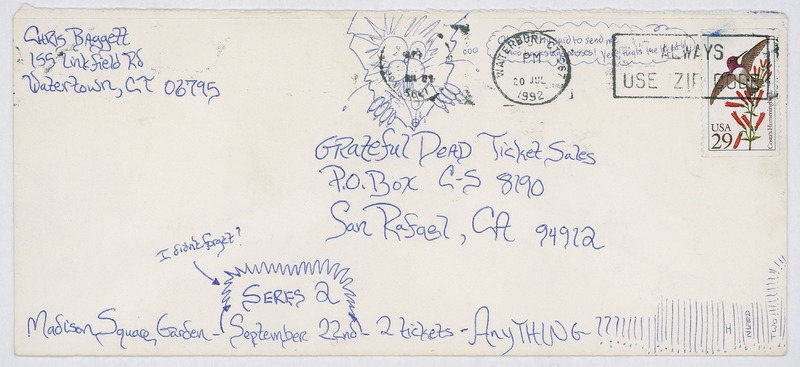 Chris Baggett
155 Linkfield Rd
Watertown, CT 06795
WATERBURY, CT 067
PM
20 JUL
1992
ALWAYS
USE ZIP CODE
USA
29
Grateful Dead Ticket Sales
P.O. Box C-S 8190
San Rafael, CA 94912
I didn't forget?
SERES 2
Madison Square Garden - September 22nd - 2 tickets - AnyTHING ???
H
NEED
TWO